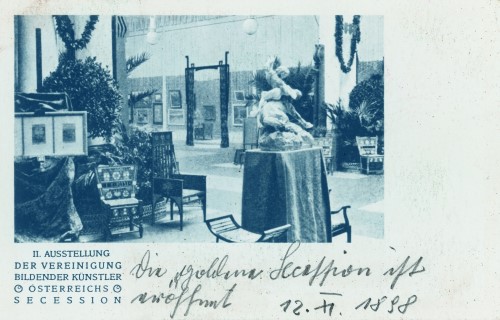 II. AUSSTELLUNG
DER VEREINIGUNG
BILDENDER KÜNSTLER
ÖSTERREICHS
SECESSION
Die „goldene Secession ist
eröffnet 12. XI. 1898